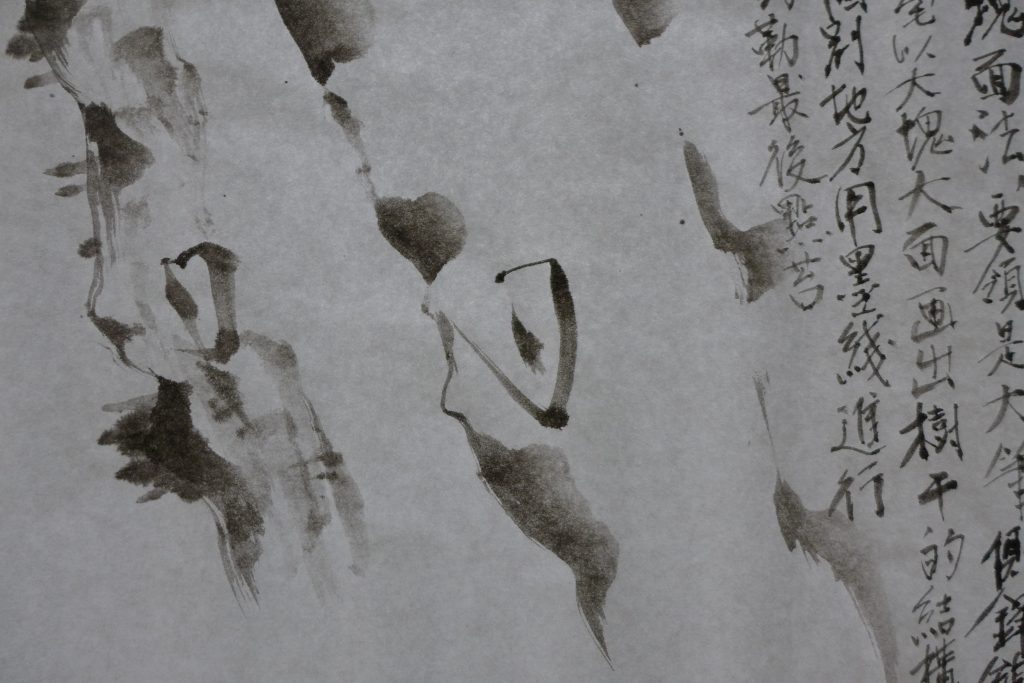 塊面法要領是大筆側鋒
笔以大塊大面画出樹干的結構
割地方用墨线進行
勒最後點苔